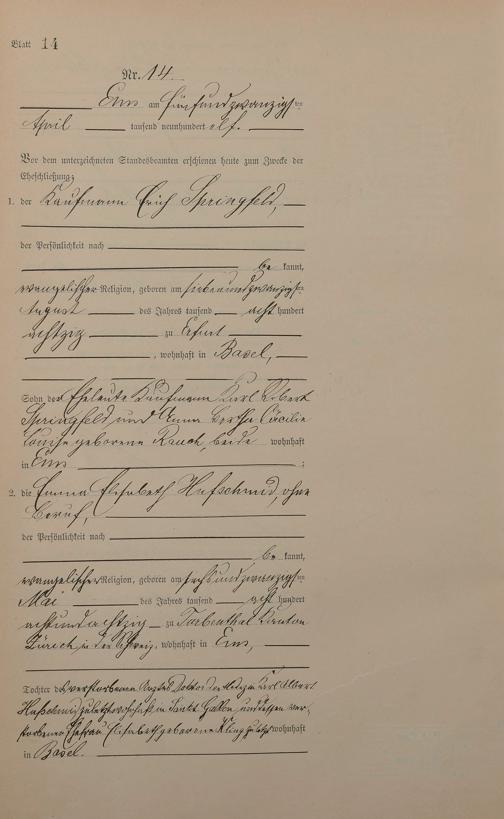 Blatt 14
Nr. 14.
Ems am fünfundzwanzigsten
April tausend neunhundert elf.
Vor dem unterzeichneten Standesbeamten erschienen heute zum Zwecke der
Eheschließung:
1. der Kaufmann Erich Springfeld,
der Persönlichkeit nach
be kannt,
evangelischer Religion, geboren am siebenundzwanzigsten
August des Jahres tausend acht hundert
achtzig zu Erfurt
, wohnhaft in Basel,
Sohn der Eheleute Kaufmann Karl Robert
Springfeld und Anna Bertha Cäcilie
Louise geborene Rauch, beide wohnhaft
in Ems ;
2. die Emma Elisabeth Hufschmid, ohne
Beruf,
der Persönlichkeit nach
be kannt,
evangelischer Religion, geboren am sechsundzwanzigsten
Mai des Jahres tausend acht hundert
achtundachtzig zu Turbenthal Kanton
Zürich in der Schweiz, wohnhaft in Ems,
Tochter des verstorbenen Arztes Doktor der Medizin Karl Albert
Hufschmid zuletzt wohnhaft in Sankt Gallen, und dessen ver-
storbenen Ehefrau Elisabeth geborene Kling zuletzt wohnhaft
in Basel.